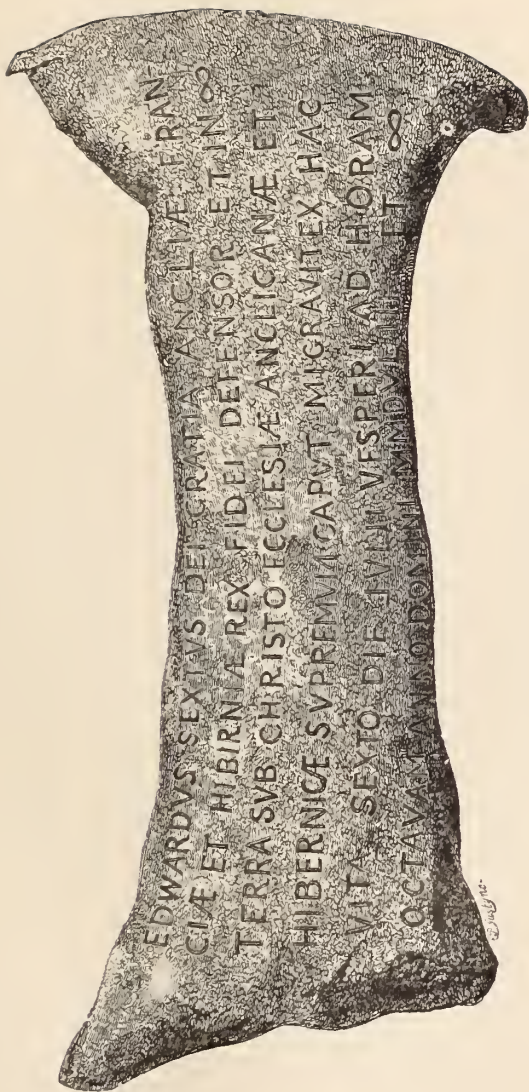 EDWARDVS SEXTVS DEI GRATIA ANGLIÆ FRAN
CIÆ ET HIBIRNIÆ REX FIDEI DEFENSOR ET IN ∞
TERRA SVB CHRISTO ECCLESIÆ ANGLICANÆ ET
HIBERNICÆ SVPREMVM CAPVT MIGRAVIT EX HAC
VITA SEXTO DIE IVLII VESPERI AD HORAM
OCTAVAM ANNO DOMINI ET ∞